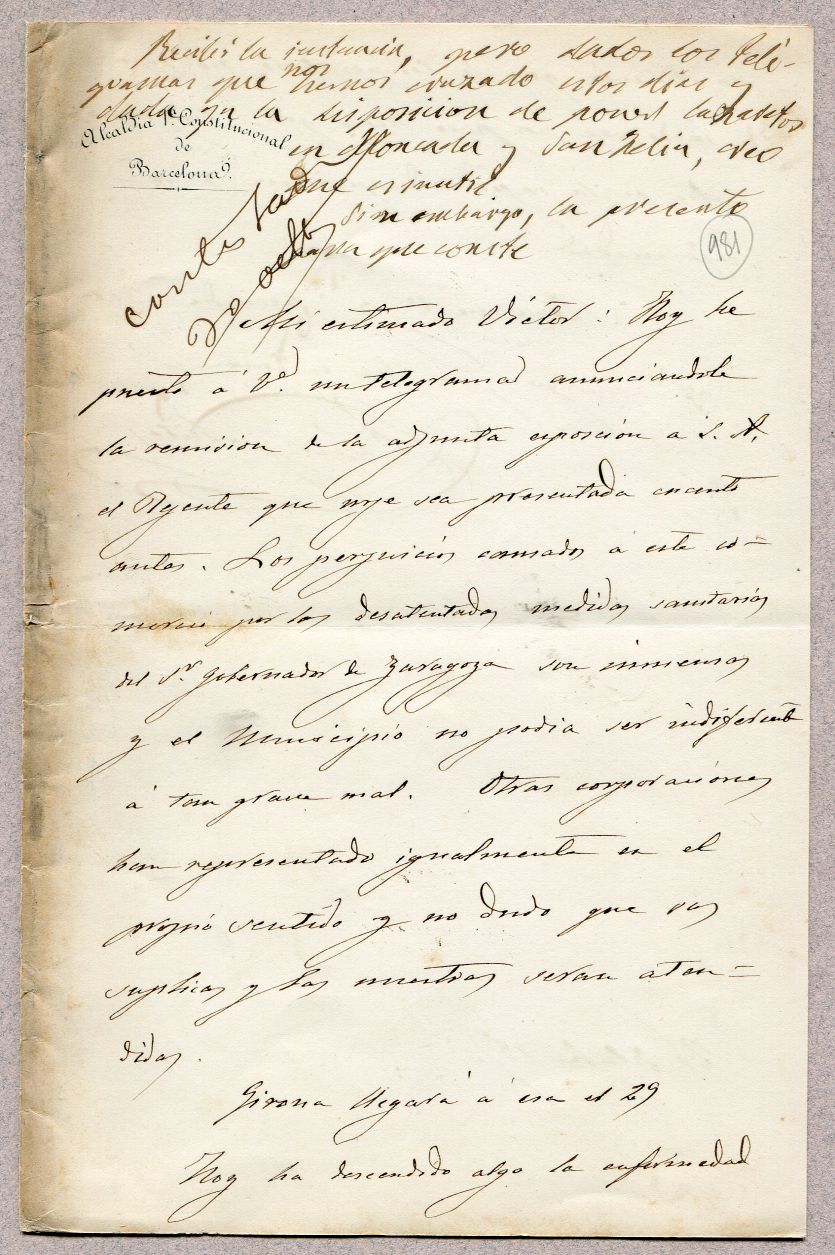 Recibí la instancia, pero dados los telé-
gramas que nos hemos cruzado estos días y
dada ya la disposicion de poner lazaretos
en Moncada y San Felíu, creo
que es inutil
Sin embargo, la presento
para que conste
Alcaldía 1ª Constitucional
de
Barcelona
981
contestada
Mi estimado Victor: Hoy he
puesto á Vd. un telegrama anunciandole
la remision de la adjunta esposicion a S. A.
el Rejente que urje sea presentada cuanto
antes. Los perjuicios causados á este co=
mercio por las desatentadas medidas sanitarias
del Sr. Gobernador de Zaragoza son inmensos
y el Municipio no podia ser indiferente
á tan grave mal. Otras corporaciones
han representado igualmente en el
propio sentido y no dudo que sus
suplicas y las nuestras seran aten=
didas.
Girona llegará á esa el 29
Hoy ha descendido algo la enfermedad